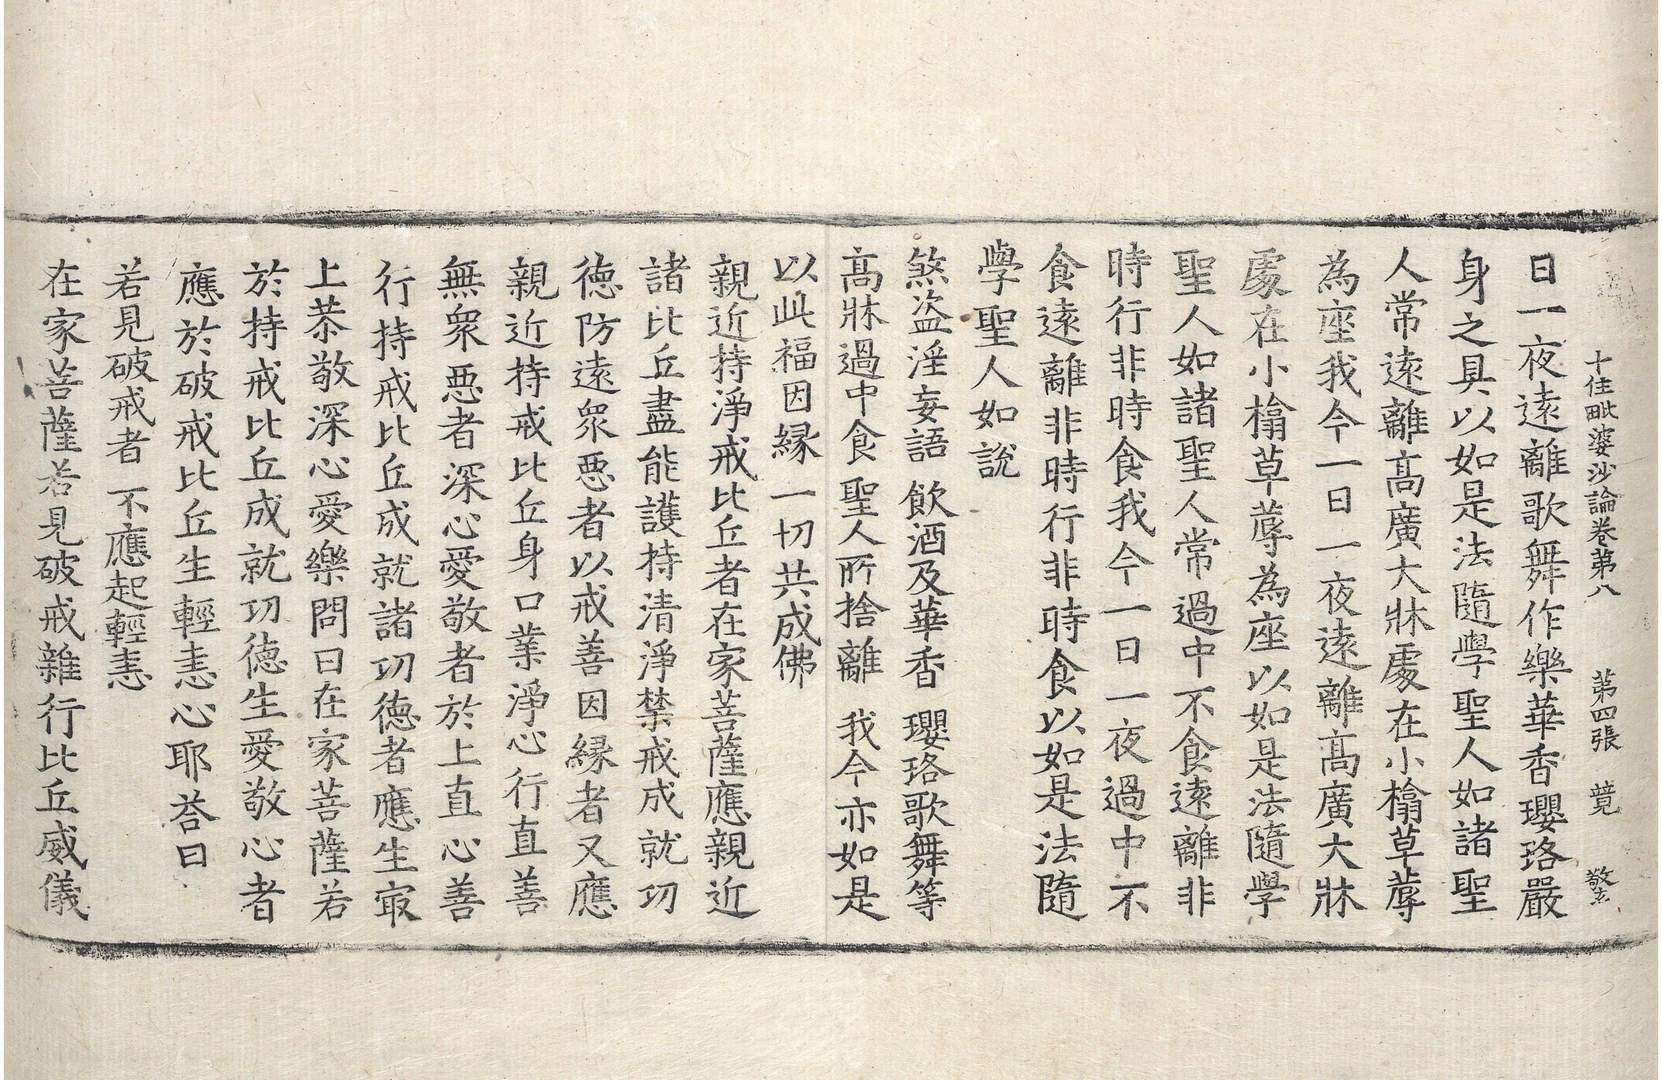 十住毗婆沙論卷第八　第四張　竟　敬
日一夜遠離歌舞作樂華香瓔珞嚴
身之具以如是法隨學聖人如諸聖
人常遠離髙廣大牀處在小㰅草蓐
為座我今一日一夜遠離髙廣大牀
處在小㰅草蓐為座以如是法隨學
聖人如諸聖人常過中不食遠離非
時行非時食我今一日一夜過中不
食遠離非時行非時食以如是法隨
學聖人如說
煞盜淫妄語　飲酒及華香　瓔珞歌舞等
髙牀過中食　聖人所捨離　我今亦如是
以此福因縁　一切共成佛
親近持淨戒比丘者在家菩薩應親近
諸比丘盡能護持清淨禁戒成就功
德防遠衆惡者以戒善因縁者又應
親近持戒比丘身口業淨心行直善
無衆惡者深心愛敬者於上直心善
行持戒比丘成就諸功德者應生㝡
上恭敬深心愛樂問曰在家菩薩若
於持戒比丘成就功德生愛敬心者
應於破戒比丘生輕恚心耶荅曰
若見破戒者　不應起輕恚
在家菩薩若見破戒雜行比丘威儀